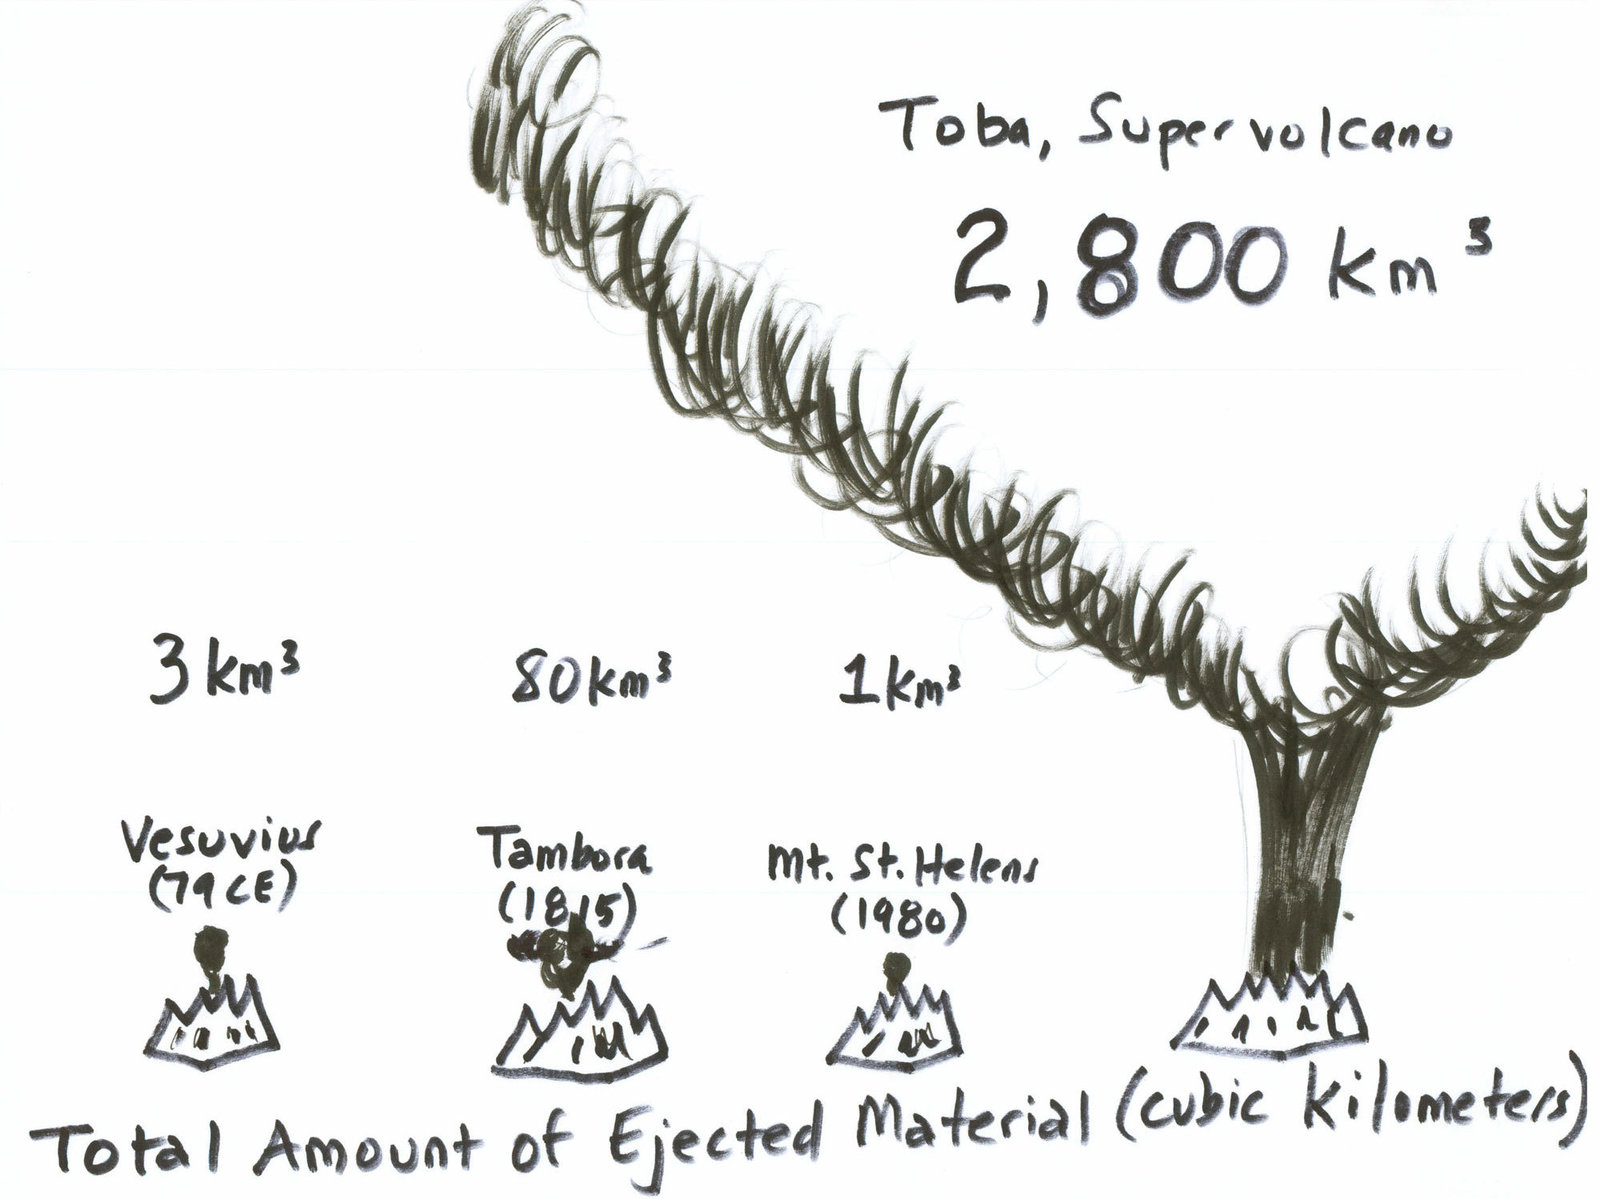 Toba, Supervolcano
2,800 km³
3 km³
80 km³
1 km³
Vesuvius
(79 CE)
Tambora
(1815)
Mt. St. Helens
(1980)
Total Amount of Ejected Material (cubic kilometers)